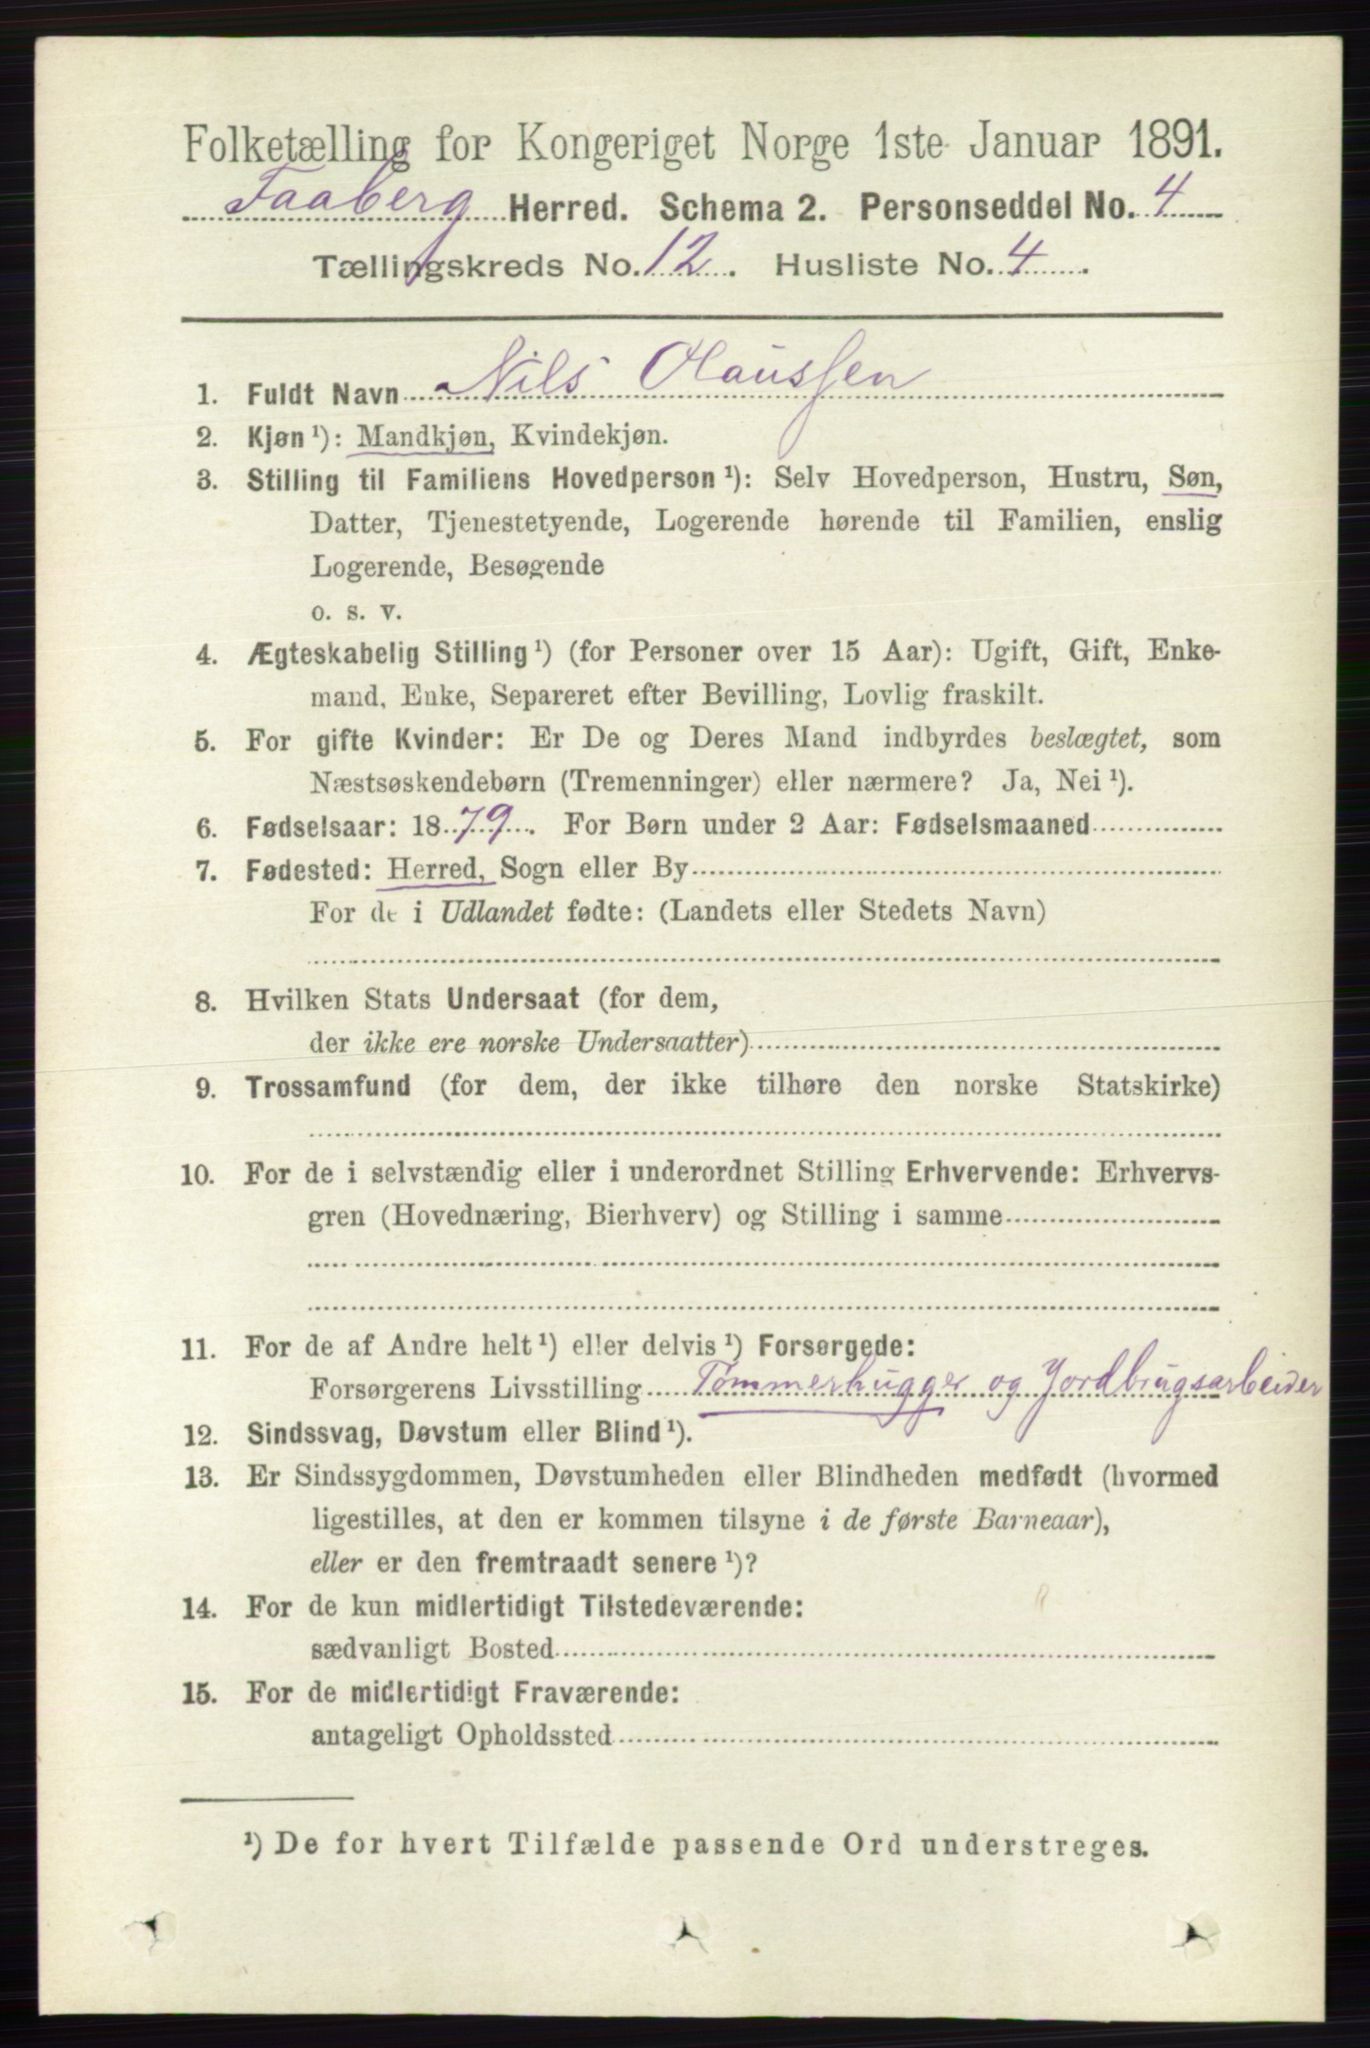 Folketælling for Kongeriget Norge 1ste Januar 1891.
Faaberg Herred. Schema 2. Personseddel No. 4
Tællingskreds No. 12. Husliste No. 4.
1. Fuldt Navn Nils Olaussen
2. Kjøn ¹): Mandkjøn, Kvindekjøn.
3. Stilling til Familiens Hovedperson ¹): Selv Hovedperson, Hustru, Søn,
Datter, Tjenestetyende, Logerende hørende til Familien, enslig
Logerende, Besøgende
o. s. v.
4. Ægteskabelig Stilling ¹) (for Personer over 15 Aar): Ugift, Gift, Enke-
mand, Enke, Separeret efter Bevilling, Lovlig fraskilt.
5. For gifte Kvinder: Er De og Deres Mand indbyrdes beslægtet, som
Næstsøskendebørn (Tremenninger) eller nærmere? Ja, Nei ¹).
6. Fødselsaar: 1879. For Børn under 2 Aar: Fødselsmaaned
7. Fødested: Herred, Sogn eller By
For de i Udlandet fødte: (Landets eller Stedets Navn)
8. Hvilken Stats Undersaat (for dem,
der ikke ere norske Undersaatter)
9. Trossamfund (for dem, der ikke tilhøre den norske Statskirke)
10. For de i selvstændig eller i underordnet Stilling Erhvervende: Erhvervs-
gren (Hovednæring, Bierhverv) og Stilling i samme
11. For de af Andre helt ¹) eller delvis ¹) Forsørgede:
Forsørgerens Livsstilling Tømmerhugger og Jordbrugsarbeider
12. Sindssvag, Døvstum eller Blind ¹).
13. Er Sindssygdommen, Døvstumheden eller Blindheden medfødt (hvormed
ligestilles, at den er kommen tilsyne i de første Barneaar),
eller er den fremtraadt senere ¹)?
14. For de kun midlertidigt Tilstedeværende:
sædvanligt Bosted
15. For de midlertidigt Fraværende:
antageligt Opholdssted
¹) De for hvert Tilfælde passende Ord understreges.